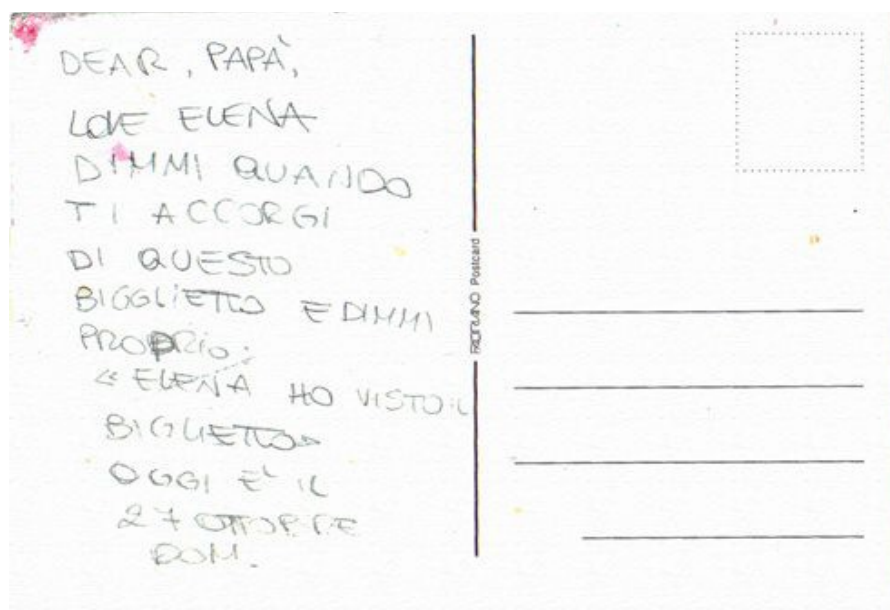 DEAR, PAPÀ,
LOVE ELENA
DIMMI QUANDO
TI ACCORGI
DI QUESTO
BIGGLIETTO E DIMMI
PROPRIO:
« ELENA HO VISTO IL
BIGLIETTO»
OGGI E' IL
27 OTTOBRE
DOM.
FABRIANO Postcard